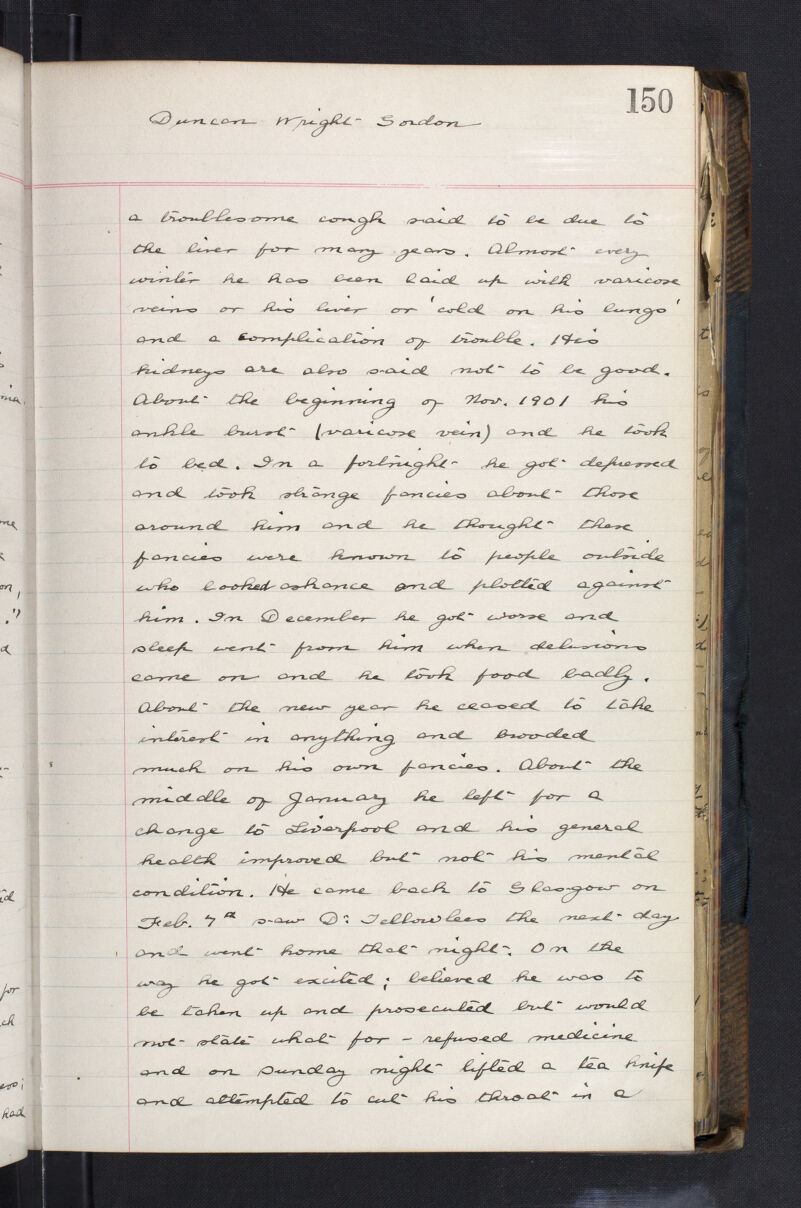 150
Duncan Wright Gordon
a troublesome cough said to be due to
the liver for many years. Almost every
winter he has been laid up with varicose
veins or his liver or 'cold on his lungs'
and a complication of trouble. His
kidneys are also said not to be good.
About the beginning of Nov. 1901 his
ankle burst (varicose vein) and he took
to bed. In a fortnight he got depressed
and took strange fancies about those
around him and he thought these
fancies were known to people outside
who looked askance and plotted against
him. In December he got worse and
sleep went from him when delusions
came on and he took food badly.
About the new year he ceased to take
interest in anything and brooded
much on his own fancies. About the
middle of January he left for a
change to Liverpool and his general
health improved but not his mental
condition. He came back to Glasgow on
Feb. 7th saw Dr. Yellowlees the next day
and went home that night. On the
way he got excited; believed he was to
be taken up and prosecuted but would
not state what for - refused medicine
and on Sunday night lifted a tea knife
and attempted to cut his throat in a